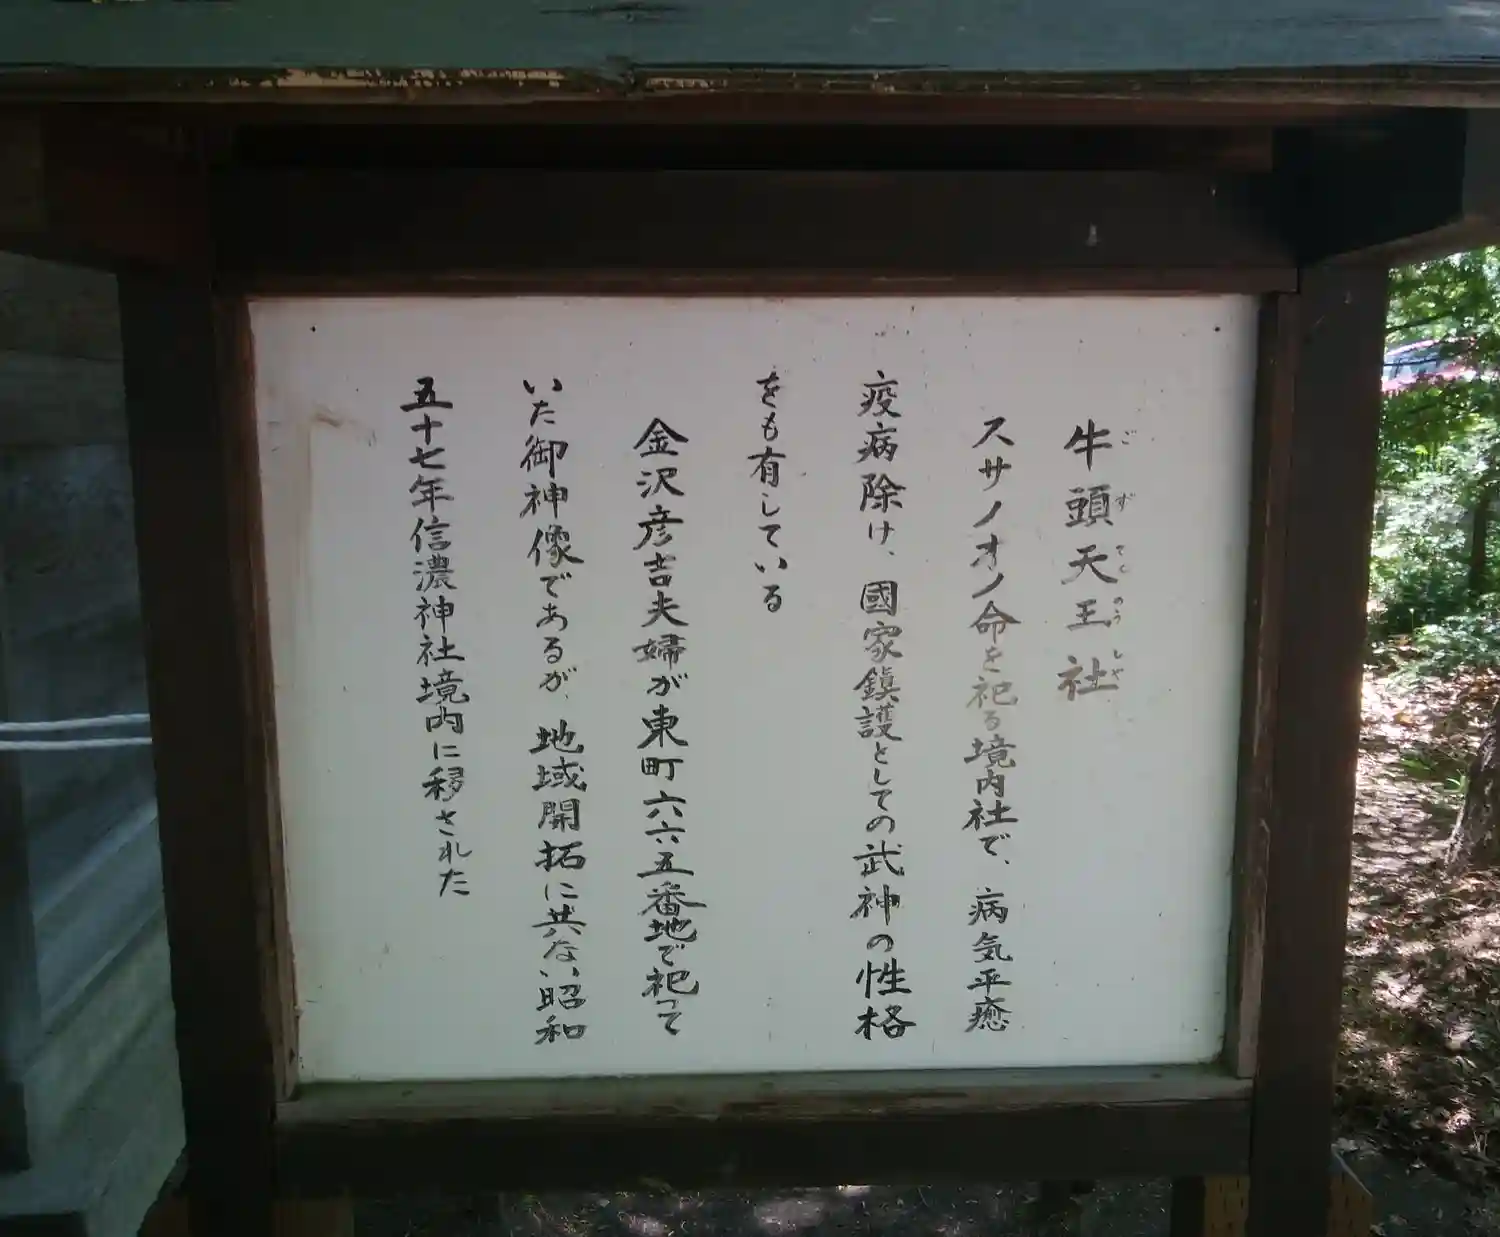 牛頭天王社
ごずてんのうしゃ
スサノオノ命を祀る境内社で、病気平癒
疫病除け、國家鎮護としての武神の性格
をも有している
金沢彦吉夫婦が東町六六五番地で祀って
いた御神像であるが、地域開拓に共ない昭和
五十七年信濃神社境内に移された